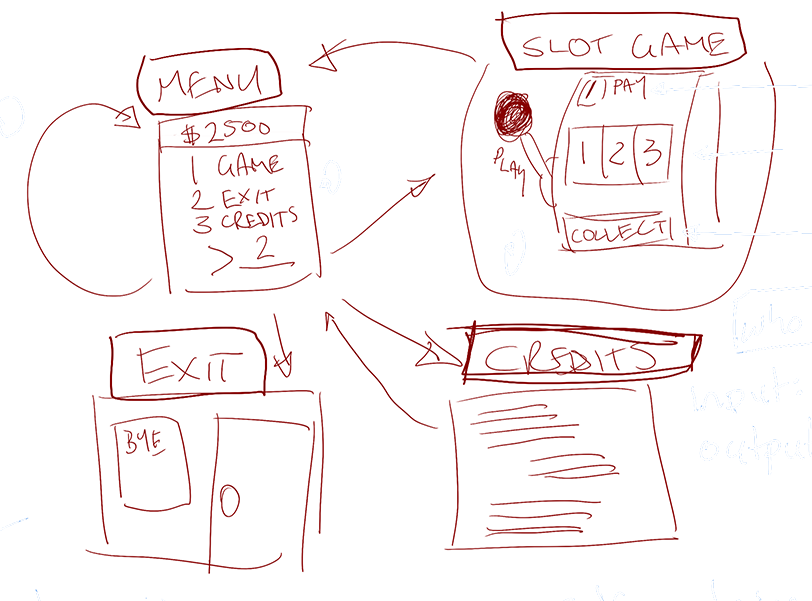 MENU
$2500
1 GAME
2 EXIT
3 CREDITS
> 2
SLOT GAME
PAY
PLAY
1 2 3
COLLECT
EXIT
BYE
CREDITS
who
input
output